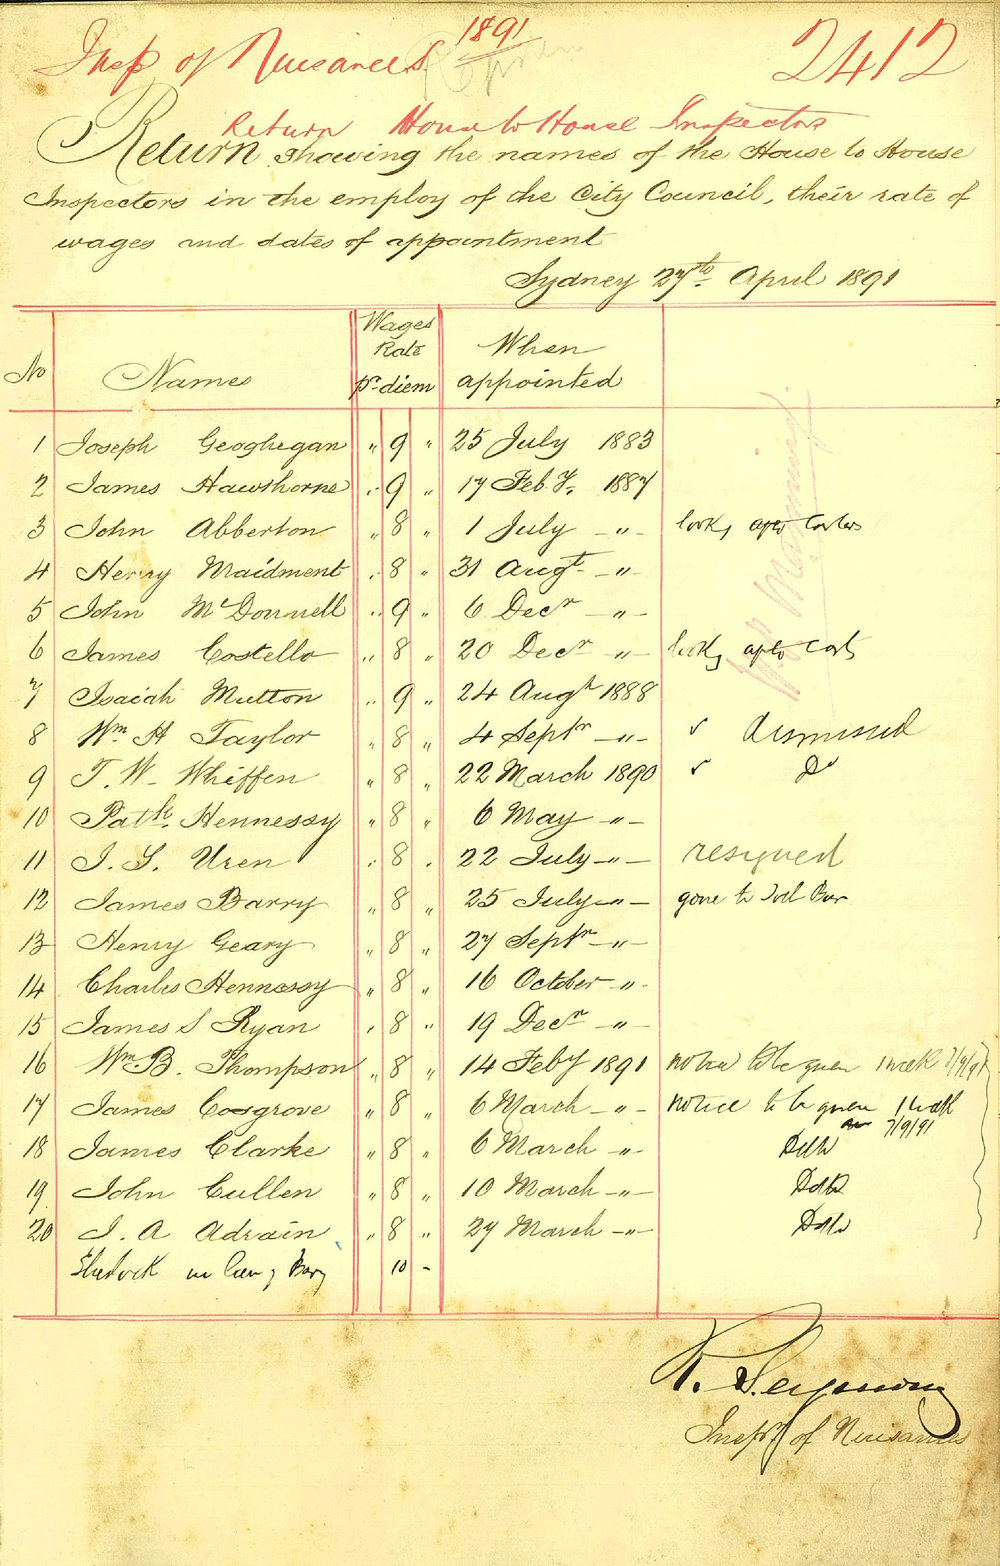 1891
Insp of Nuisances
2412
Return House to House Inspectors
Return showing the names of the House to House
Inspectors in the employ of the City Council, their rate of
wages and dates of appointment
Sydney 27th April 1891
No Names Wages Rate pr diem When appointed
1 Joseph Geoghegan " 9 " 25 July 1883
2 James Hawthorne " 9 " 17 Feby. 1887
3 John Abberton " 8 " 1 July -"- looks after
4 Henry Maidment " 8 " 31 Augt -"-
5 John McDonnell " 9 " 6 Decr -"-
6 James Costello " 8 " 20 Decr -"- looks after carts
7 Isaiah Mutton " 9 " 24 Augt 1888
8 Wm H Taylor " 8 " 4 Septr -"- dismissed
9 T. W. Whiffen " 8 " 22 March 1890 Do
10 Patk. Hennessy " 8 " 6 May -"-
11 J. S. Uren " 8 " 22 July -"- resigned
12 James Barry " 8 " 25 July -"- gone to
13 Henry Geary " 8 " 27 Septr -"-
14 Charles Hennessy " 8 " 16 October -"-
15 James S Ryan " 8 " 19 Decr -"-
16 Wm. B. Thompson " 8 " 14 Feby 1891 notice to be given 1 week 7/9/91
17 James Cosgrove " 8 " 6 March -"- notice to be given 1 week
7/9/91
18 James Clarke " 8 " 6 March -"- Ditto
19 John Cullen " 8 " 10 March -"- Ditto
20 J. A Adrain " 8 " 27 March -"- Ditto
10 -
R. Seymour
Inspr of Nuisances